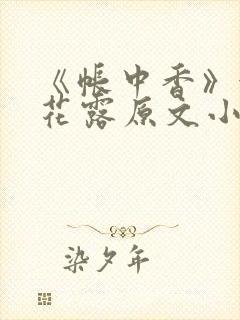 《帐中香》
花露原文小
染夕年